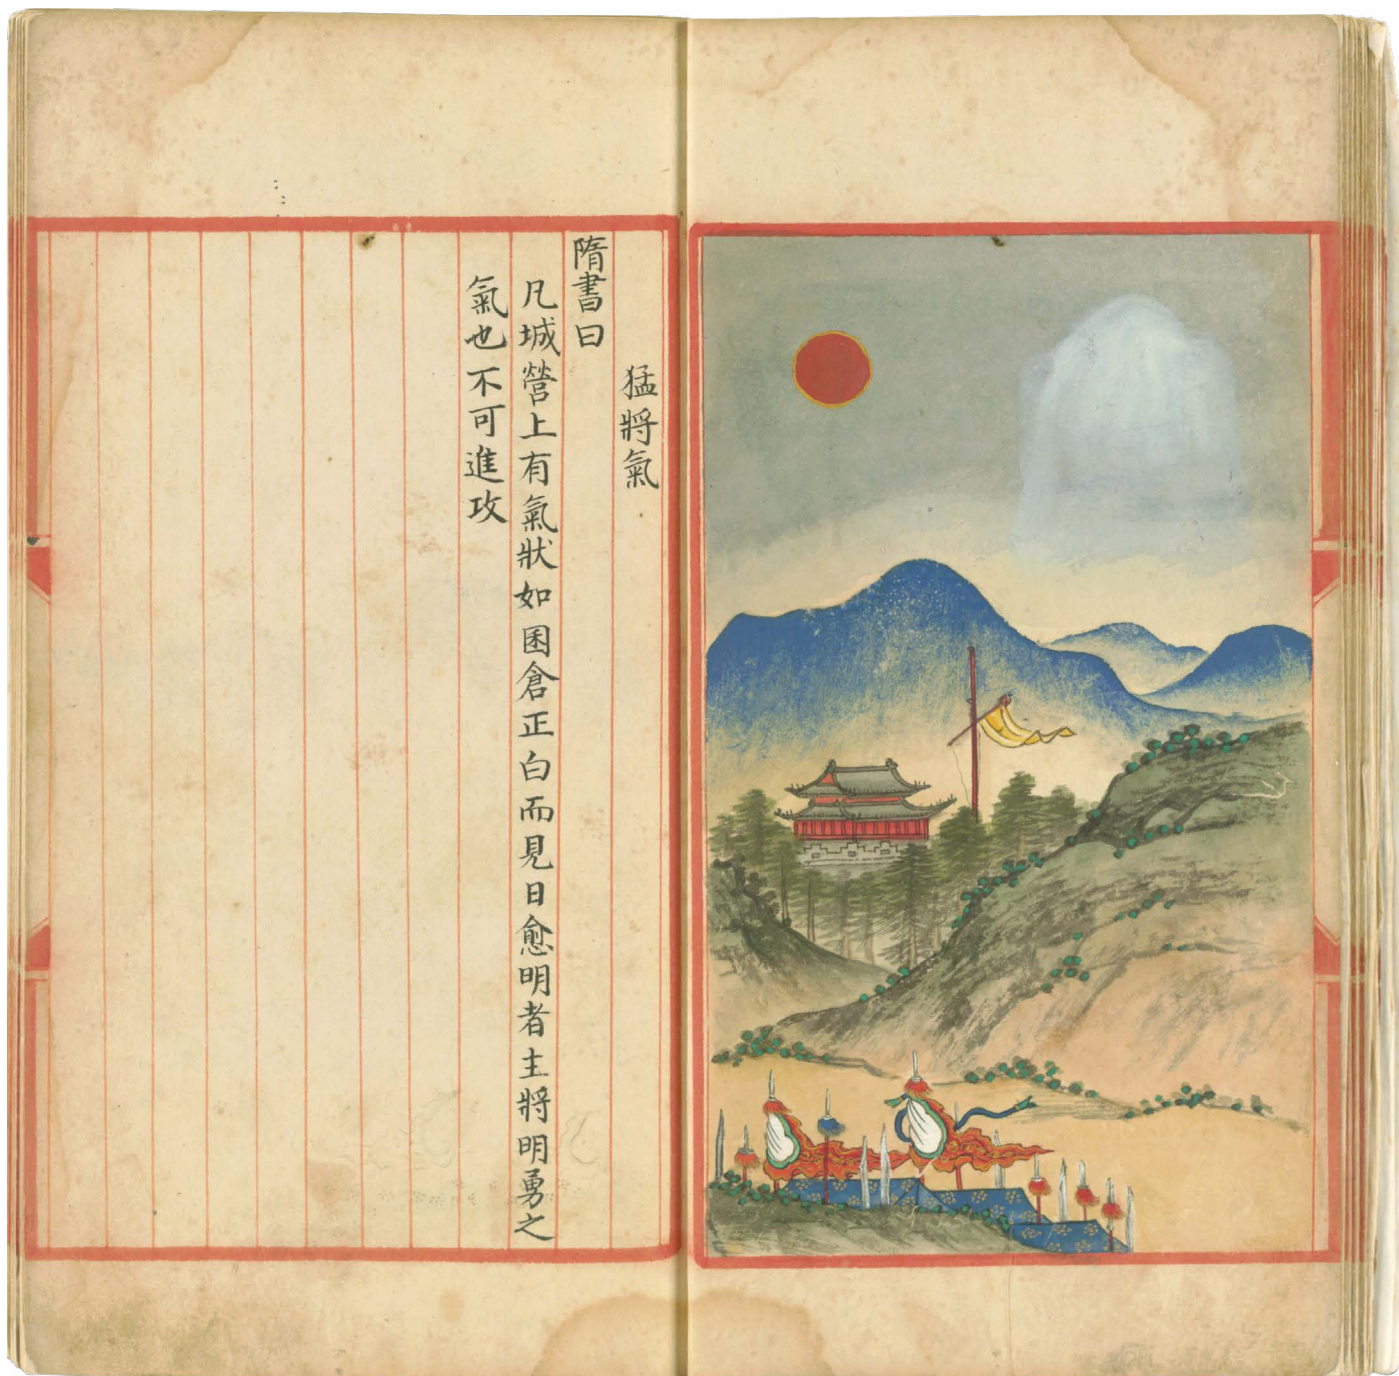 猛將氣
隋書曰
凡城營上有氣狀如囷倉正白而見日愈明者主將明勇之
氣也不可進攻